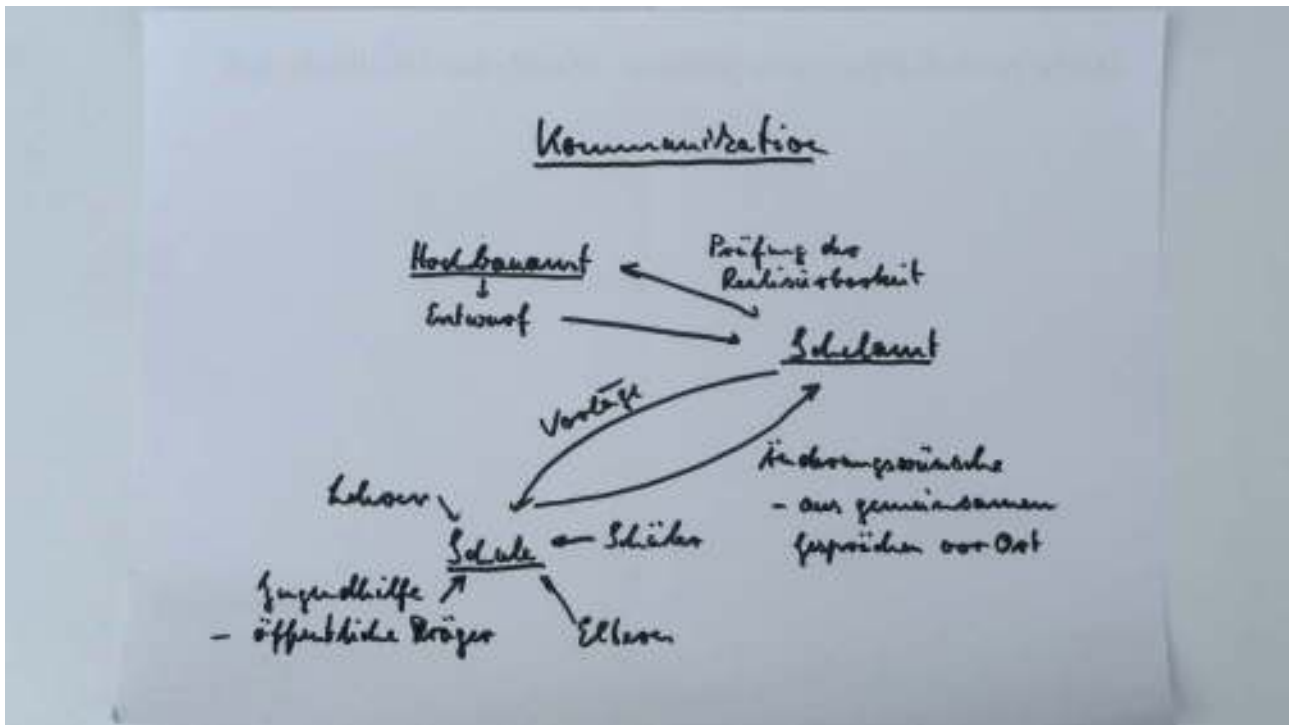 Kommunikation
Hochbauamt
Prüfung der
Realisierbarkeit
Entwurf
Schulamt
Vorlage
Änderungswünsche
- aus gemeinsamen
Gesprächen vor Ort
Lehrer
Schüler
Schule
Jugendhilfe
- öffentliche Träger
Eltern